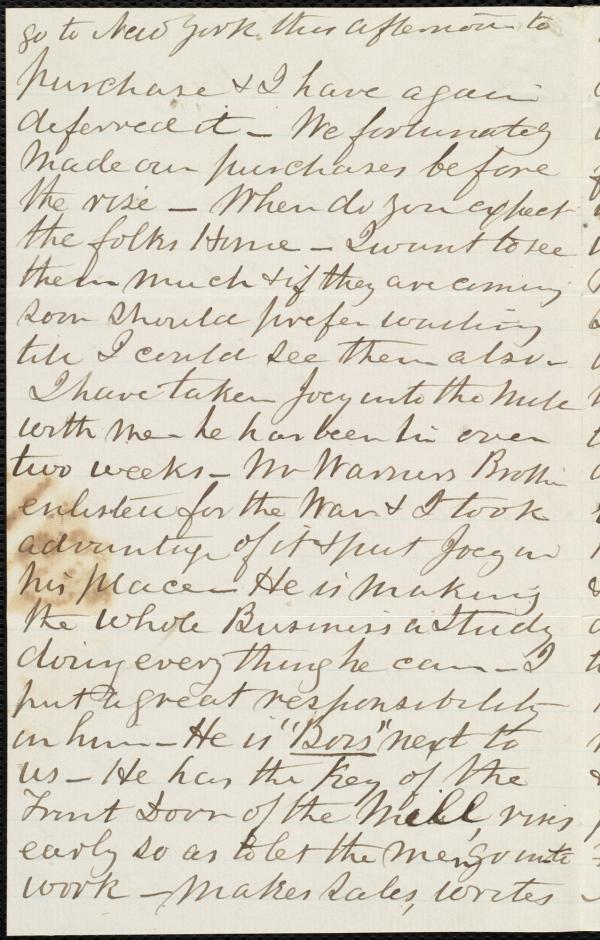 go to New York this afternoon to
purchase & I have again
deferred it - We fortunately
made our purchases before
the rise - When do you expect
the folks Home - I want to see
them much & if they are coming
soon should prefer waiting
till I could see them also -
I have taken Joey into the Mill
with me - he has been in over
two weeks - Mr Warners Brother
enlisted for the War & I took
advantage of it & put Joey in
his place - He is making
the whole Business a Study
doing every thing he can - I
put a great responsibility
on him - He is "Boss" next to
us - He has the Key of the
Front Door of the Mill, rises
early so as to let the men go into
work - makes sales, writes